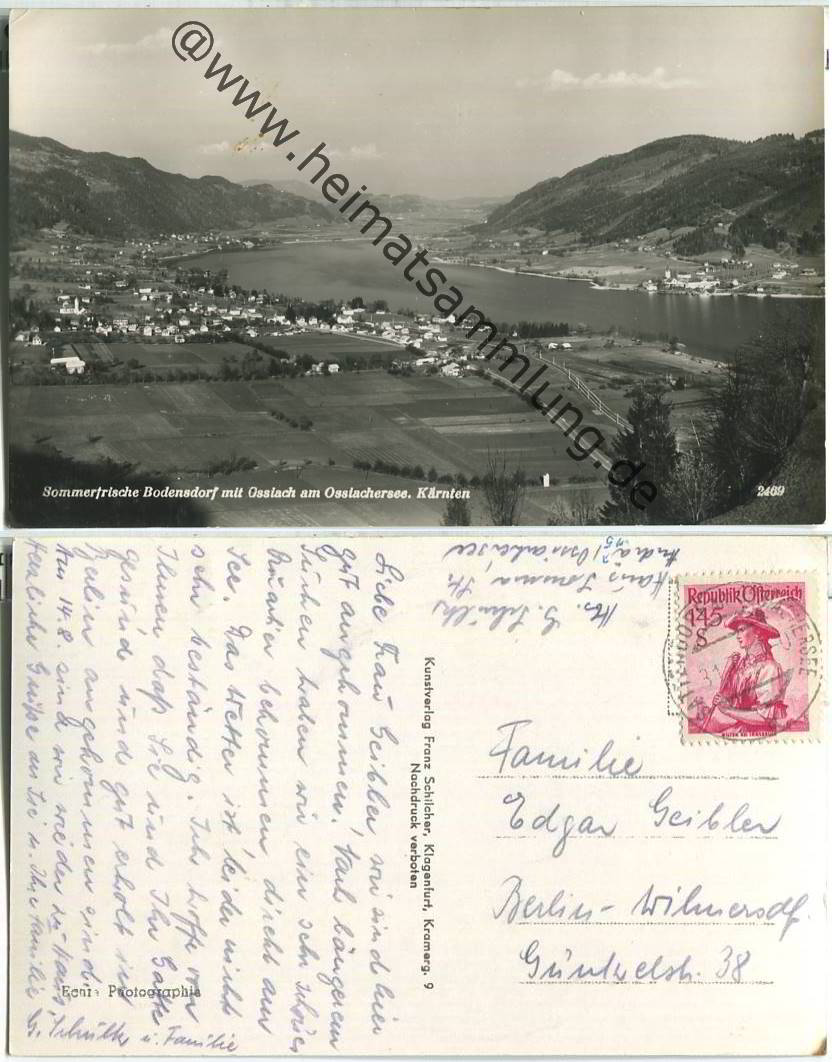 @www.heimatsammlung.de
Sommerfrische Bodensdorf mit Ossiach am Ossiachersee. Kärnten
2469
Liebe Frau Geibler, wir sind hier
gut angekommen. Nach längerem
Suchen haben wir ein sehr schönes
Quartier bekommen, direkt am
See. Das Wetter ist leider nicht
sehr beständig. Ich hoffe von
Ihnen daß Sie und Ihr Gatte
gesund und gut erholt in
Berlin angekommen sind.
Am 14.8. sind wir wieder zu Haus.
Herzliche Grüße an Sie u. Ihre Familie
G. Schultz u. Familie
Echte Photographie
Kunstverlag Franz Schilcher, Klagenfurt, Kramerg. 9
Nachdruck verboten
Abs. G. Schultz
Haus
Ossiachersee
Republik Österreich
1.45
S
SATTENDORF
Familie
Edgar Geibler
Berlin-Wilmersdf.
Güntzelstr. 38